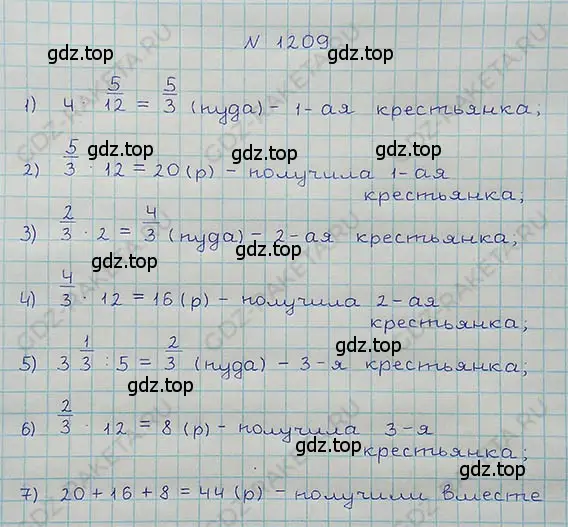 N 1209
gdz.top
1) 4 · 5/12 = 5/3 (пуда) - 1-ая крестьянка;
gdz.top gdz.top
2) 5/3 · 12 = 20 (р) - получила 1-ая
крестьянка;
gdz.top gdz.top
3) 2/3 · 2 = 4/3 (пуда) - 2-ая крестьянка;
gdz.top
4) 4/3 · 12 = 16 (р) - получила 2-ая
крестьянка;
gdz.top
5) 3 1/3 : 5 = 2/3 (пуда) - 3-я крестьянка;
gdz.top
6) 2/3 · 12 = 8 (р) - получила 3-я
крестьянка;
gdz.top
gdz.top
7) 20 + 16 + 8 = 44 (р) - получили вместе
gdz.top
GDZ-RAKETA.RU